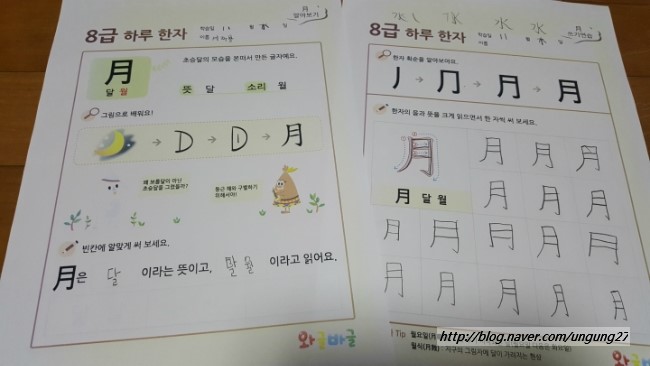 月
알아보기
8급 하루 한자
학습일 11 월 일
이름
月
달 월
초승달의 모습을 본떠서 만든 글자예요.
뜻 달 소리 월
그림으로 배워요!
D D 月
왜 보름달이 아닌
초승달을 그렸을까?
둥근 해와 구별하기
위해서야!
빈칸에 알맞게 써 보세요.
月은 달 이라는 뜻이고, 월 이라고 읽어요.
와글바글
水 水 水 水
月
쓰기연습
8급 하루 한자
학습일 11 월 일
이름
한자 획순을 알아보아요.
丿 冂 月 月
한자의 음과 뜻을 크게 읽으면서 한 자씩 써 보세요.
月 月 月 月
月 달 월 月 月 月
月 月 月 月 月
月 月 月 月 月
Tip 월요일(月
월식(月蝕) : 지구의 그림자에 달이 가려지는 현상
http://blog.naver.com/ungung27